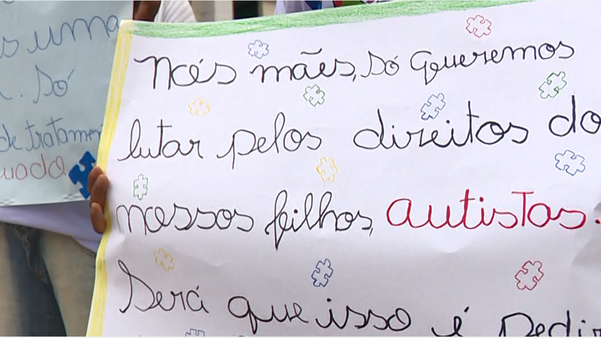 s uma
. Só
de tratamen
uado.
Nós mães, só queremos
lutar pelos direitos do
nossos filhos, autistas.
Será que isso é pedir